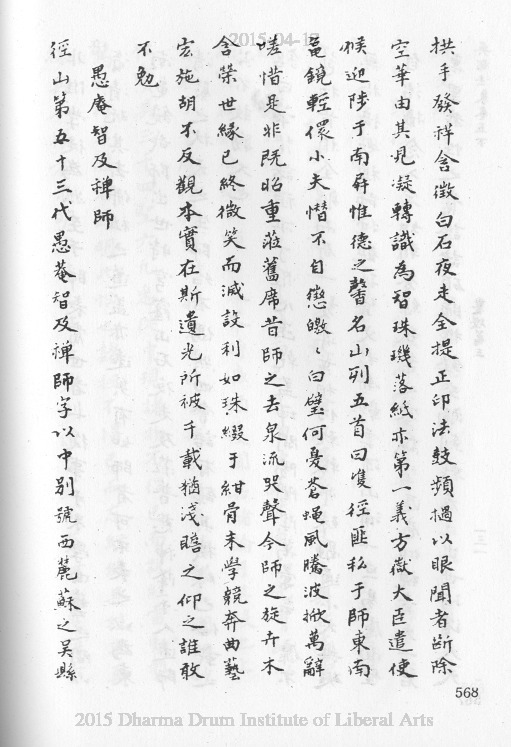 2015-04-13
拱手發祥含徵白石夜走全提正印法鼓頻撾以眼聞者斷除
空華由其見凝轉識為智珠璣落紙亦第一義方嶽大臣遣使
候迎陟于南屏惟德之馨名山列五首曰雙徑匪私于師東南
黿鏡輕儇小夫憯不自懲皦〻白璧何憂蒼蠅風騰波掀萬辭
嗟惜是非既昭重蒞舊席昔師之去泉流哭聲今師之旋卉木
含榮世緣已終微笑而滅設利如珠綴于紺骨末學競奔曲藝
宏施胡不反觀本實在斯遺光所被千載猶淺瞻之仰之誰敢
不勉
愚庵智及禪師
徑山第五十三代愚菴智及禪師字以中別號西麓蘇之吳縣
568
2015 Dharma Drum Institute of Liberal Arts